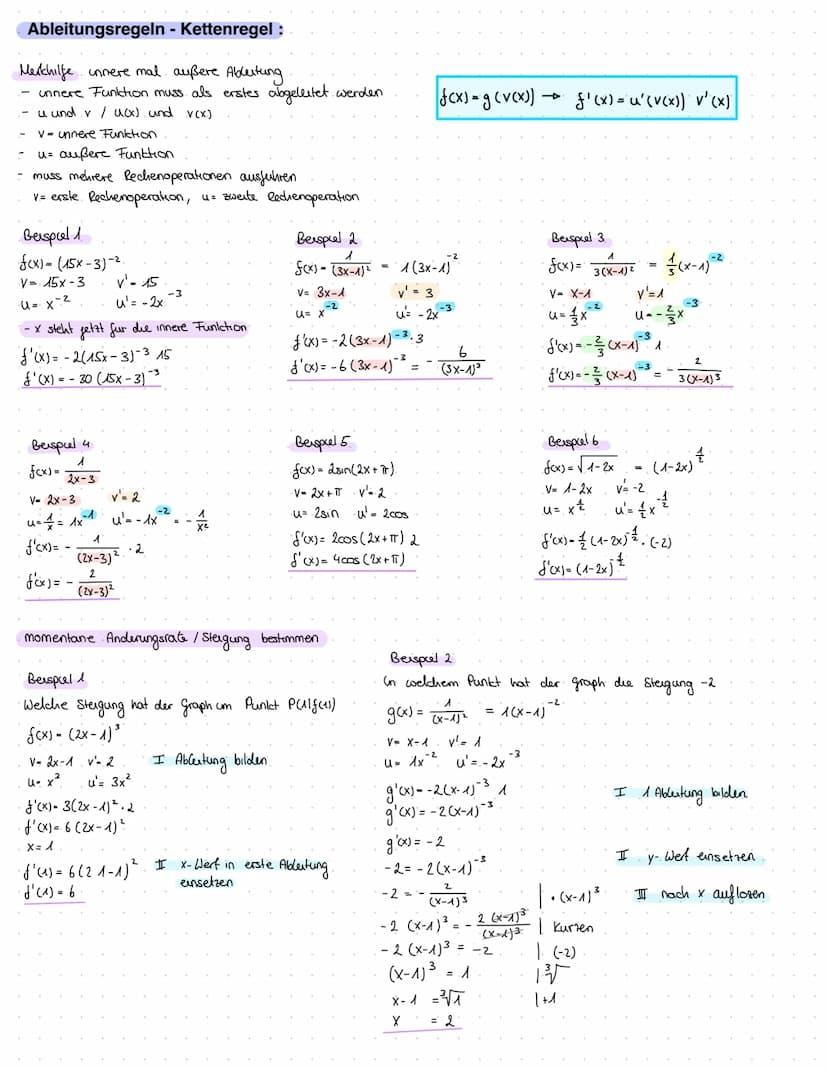 Ableitungsregeln - Kettenregel :
Merkhilfe innere mal außere Ableitung
- innere Funktion muss als erstes abgeleitet werden
- u und v / u(x) und v(x)
- v= innere Funktion
- u= außere Funktion
- muss mehrere Rechenoperationen ausführen
v= erste Rechenoperation, u= zweite Rechenoperation
f(x)=g(v(x)) → f'(x)=u'(v(x)) v'(x)
Beispiel 1
f(x)=(15x-3)^-2
v= 15x-3 v'=15
u= x^-2 u'=-2x^-3
- x steht jetzt für die innere Funktion
f'(x)=-2(15x-3)^-3 15
f'(x)=-30(15x-3)^-3
Beispiel 2
f(x)= 1/(3x-1)² = 1(3x-1)^-2
v= 3x-1 v'=3
u= x^-2 u'=-2x^-3
f'(x)=-2(3x-1)^-3·3
f'(x)=-6(3x-1)^-3 = - 6/(3x-1)³
Beispiel 3
f(x)= 1/3(x-1)² = 1/3(x-1)^-2
v= x-1 v'=1
u= 1/3x^-2 u=-2/3x^-3
f'(x)=-2/3(x-1)^-3 1
f'(x)=-2/3(x-1)^-3 = - 2/3(x-1)³
Beispiel 4
f(x)= 1/2x-3
v= 2x-3 v'=2
u= 1/x = 1x^-1 u'=-1x^-2 = - 1/x²
f'(x)= - 1/(2x-3)² · 2
f'(x)= - 2/(2x-3)²
Beispiel 5
f(x)=2sin(2x+π)
v= 2x+π v'=2
u= 2sin u'=2cos
f'(x)=2cos(2x+π) 2
f'(x)=4cos(2x+π)
Beispiel 6
f(x)=√1-2x = (1-2x)^1/2
v= 1-2x v'=-2
u= x^1/2 u'=1/2x^-1/2
f'(x)=1/2(1-2x)^-1/2·(-2)
f'(x)=(1-2x)^-1/2
momentane Änderungsrate / Steigung bestimmen
Beispiel 1
Welche Steigung hat der Graph im Punkt P(1|f(1))
f(x)=(2x-1)³
v= 2x-1 v'=2 I Ableitung bilden
u= x³ u'=3x²
f'(x)=3(2x-1)²·2
f'(x)=6(2x-1)²
x=1
f'(1)=6(2 1-1)² II x-Wert in erste Ableitung
einsetzen
f'(1)=6
Beispiel 2
in welchem Punkt hat der graph die Steigung -2
g(x)= 1/(x-1)² = 1(x-1)^-2
v= x-1 v'=1
u= 1x^-2 u'=-2x^-3
g'(x)=-2(x-1)^-3 1 I 1 Ableitung bilden
g'(x)=-2(x-1)^-3
g'(x)=-2
-2=-2(x-1)^-3 II y-Wert einsetzen
-2 = - 2/(x-1)³ | ·(x-1)³ III nach x auflösen
-2 (x-1)³ = - 2(x-1)³/(x-1)³ | Kürzen
-2 (x-1)³ = -2 | (-2)
(x-1)³ = 1 | ³√
x-1 = ³√1 | +1
x = 2